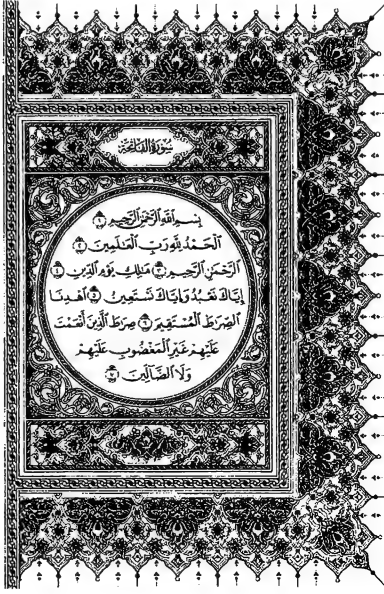 سُورَةُ الفَاتِحَةِ
بِسْمِ ٱللَّهِ ٱلرَّحْمَٰنِ ٱلرَّحِيمِ ۝١
ٱلْحَمْدُ لِلَّهِ رَبِّ ٱلْعَٰلَمِينَ ۝٢
ٱلرَّحْمَٰنِ ٱلرَّحِيمِ ۝٣ مَٰلِكِ يَوْمِ ٱلدِّينِ ۝٤
إِيَّاكَ نَعْبُدُ وَإِيَّاكَ نَسْتَعِينُ ۝٥ ٱهْدِنَا
ٱلصِّرَٰطَ ٱلْمُسْتَقِيمَ ۝٦ صِرَٰطَ ٱلَّذِينَ أَنْعَمْتَ
عَلَيْهِمْ غَيْرِ ٱلْمَغْضُوبِ عَلَيْهِمْ
وَلَا ٱلضَّآلِّينَ ۝٧